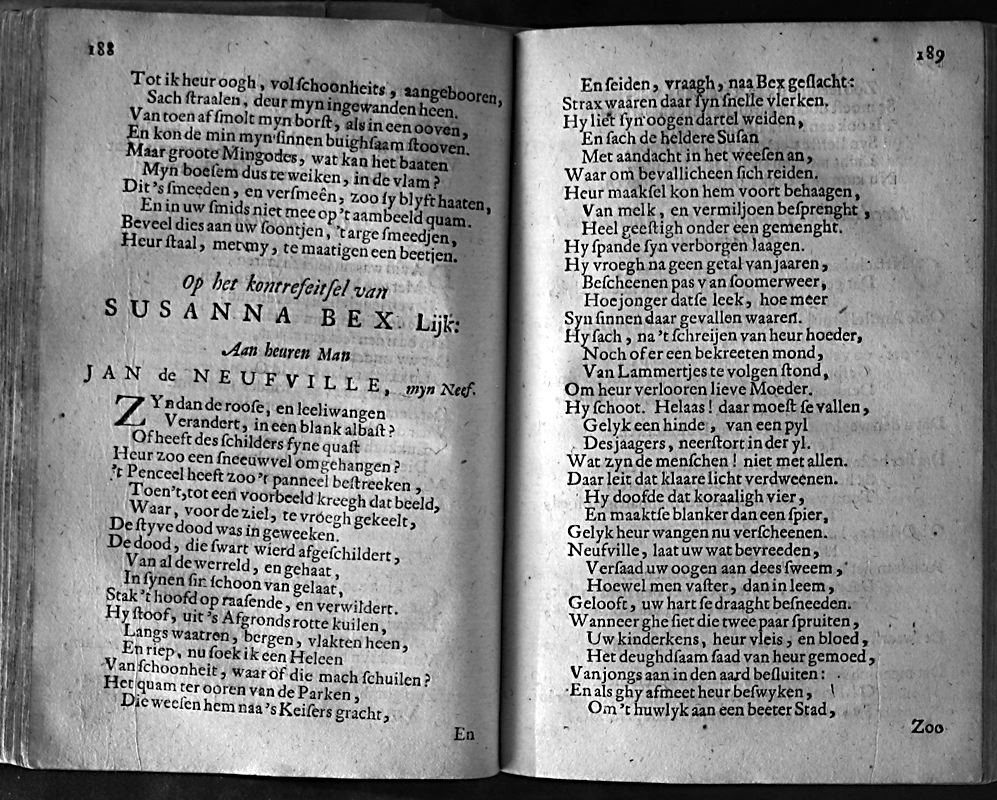 188
Tot ik heur oogh, vol schoonheits, aangebooren,
Sach straalen, deur myn ingewanden heen.
Van toen af smolt myn borst, als in een ooven,
En kon de min myn sinnen buighsaam stooven.
Maar groote Mingodes, wat kan het baaten
Myn boesem dus te weiken, in de vlam?
Dit's smeeden, en versmeên, zoo sy blyft haaten,
En in uw smids niet mee op 't aambeeld quam.
Beveel dies aan uw soontjen, 't arge smeedjen,
Heur staal, met my, te maatigen een beetjen.
Op het konterfeitsel van
SUSANNA BEX Lijk:
Aan heuren Man
JAN de NEUFVILLE, myn Neef.
ZYn dan de roose, en leeliwangen
Verandert, in een blank albast?
Of heeft des schilders fyne quast
Heur zoo een sneeuwvel omgehangen?
't Penceel heeft zoo 't panneel bestreeken,
Toen't, tot een voorbeeld kreegh dat beeld,
Waar, voor de ziel, te vroegh gekeelt,
De styve dood was in geweeken.
De dood, die swart wierd afgeschildert,
Van al de werreld, en gehaat,
In synen sin schoon van gelaat,
Stak 't hoofd op raasende, en verwildert.
Hy stoof, uit 's Afgronds rotte kuilen,
Langs waatren, bergen, vlakten heen,
En riep, nu soek ik een Heleen
Van schoonheit, waar of die mach schuilen?
Het quam ter ooren van de Parken,
Die weesen hem naa 's Keisers gracht,
En
189
En seiden, vraagh, naa Bex geslacht:
Strax waaren daar syn snelle vlerken.
Hy liet syn oogen dartel weiden,
En sach de heldere Susan
Met aandacht in het weesen an,
Waar om bevallicheen sich reiden.
Heur maaksel kon hem voort behaagen,
Van melk, en vermiljoen besprenght,
Heel geestigh onder een gemenght.
Hy spande syn verborgen laagen.
Hy vroegh na geen getal van jaaren,
Bescheenen pas van soomerweer,
Hoe jonger datse leek, hoe meer
Syn sinnen daar gevallen waaren.
Hy sach, na 't schreijen van heur hoeder,
Noch of er een bekreeten mond,
Van Lammertjes te volgen stond,
Om heur verlooren lieve Moeder.
Hy schoot. Helaas! daar moest se vallen,
Gelyk een hinde, van een pyl
Des jaagers, neerstort in der yl.
Wat zyn de menschen! niet met allen.
Daar leit dat klaare licht verdweenen.
Hy doofde dat koraaligh vier,
En maaktse blanker dan een spier,
Gelyk heur wangen nu verscheenen.
Neufville, laat uw wat bevreeden,
Versaad uw oogen aan dees sweem,
Hoewel men vaster, dan in leem,
Gelooft, uw hart se draaght besneeden.
Wanneer ghe siet die twee paar spruiten,
Uw kinderkens, heur vleis, en bloed,
Het deughdsaam saad van heur gemoed,
Van jongs aan in den aard besluiten:
En als ghy afmeet heur beswyken,
Om 't huwlyk aan een beeter Stad,
Zoo